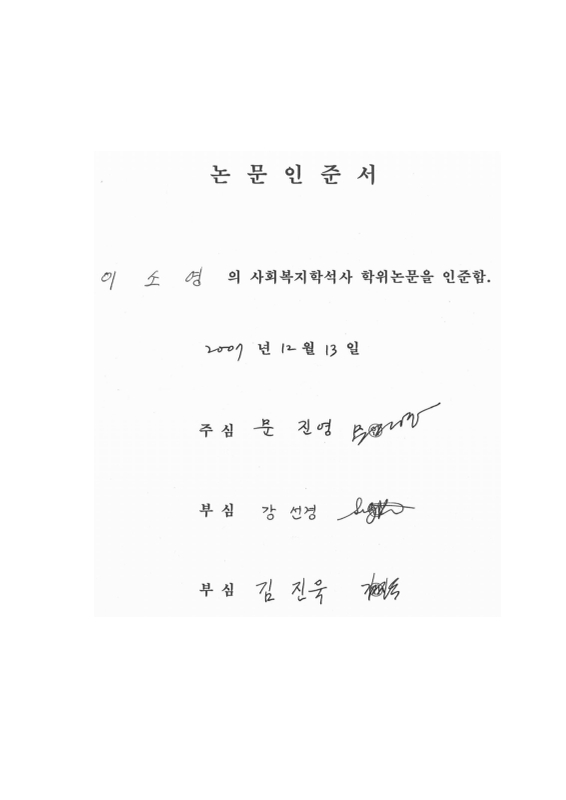 논 문 인 준 서
이 소 영 의 사회복지학석사 학위논문을 인준함.
2007 년 12 월 13 일
주 심 문 진영
부 심 강 선경
부 심 김 진욱